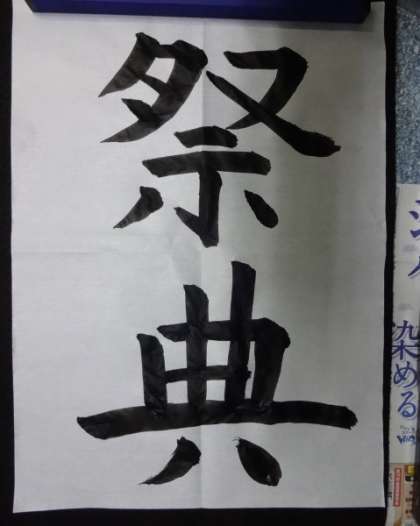 祭典
染める